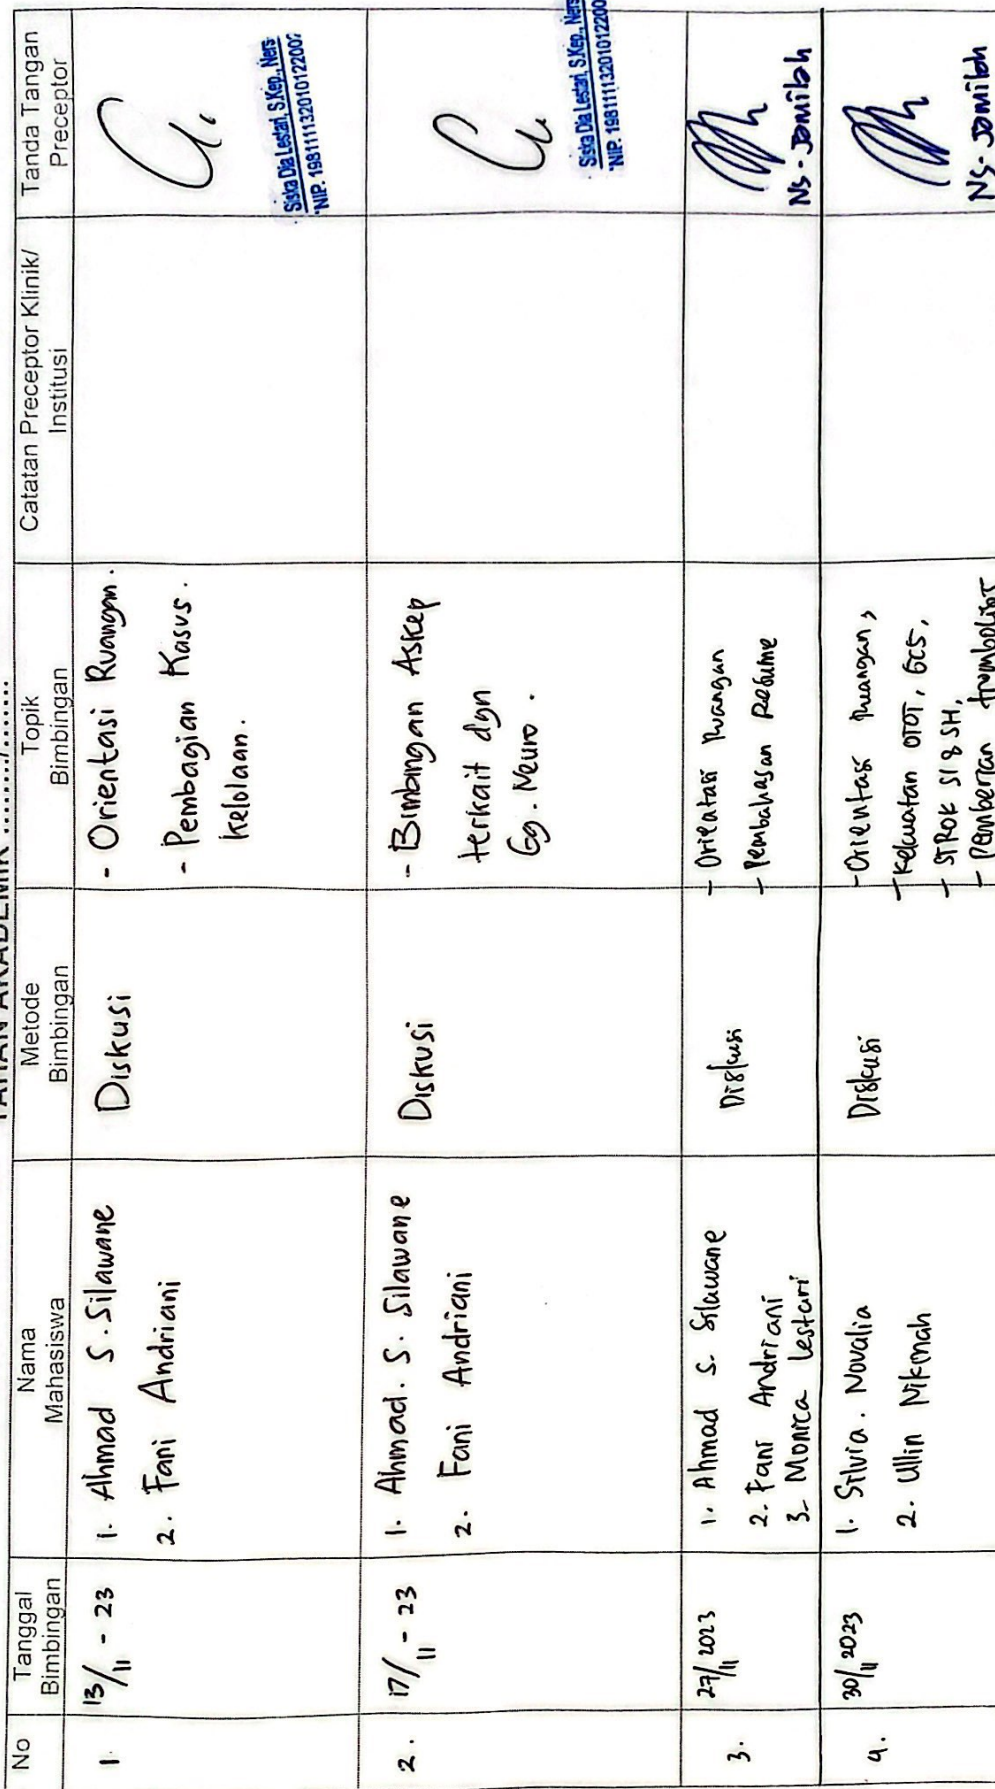 TAHAN AKADEMIK ......../........
No
Tanggal
Bimbingan
Nama
Mahasiswa
Metode
Bimbingan
Topik
Bimbingan
Catatan Preceptor Klinik/
Institusi
Tanda Tangan
Preceptor
1.
13/11 - 23
1. Ahmad S. Silawane
2. Fani Andriani
Diskusi
- Orientasi Ruangan.
- Pembagian Kasus.
kelolaan.
Siska Dia Lestari, S.Kep., Ners
NIP. 198111132010122002
2.
17/11 - 23
1. Ahmad. S. Silawane
2. Fani Andriani
Diskusi
- Bimbingan Askep
terkait dgn
Gg. Neuro.
Siska Dia Lestari, S.Kep., Ners
NIP. 19811113201012200
3.
27/11 2023
1. Ahmad S. Silawane
2. Fani Andriani
3. Monica Lestari
Diskusi
- Orientasi Ruangan
- Pembahasan Resume
NS - Jamilah
4.
30/11 2023
1. Silvia. Novalia
2. Ullin Nikmah
Diskusi
- Orientasi Ruangan,
- Kekuatan OTOT, GCS,
- STROK SI & SH,
- Pemberian
NS - Jamilah